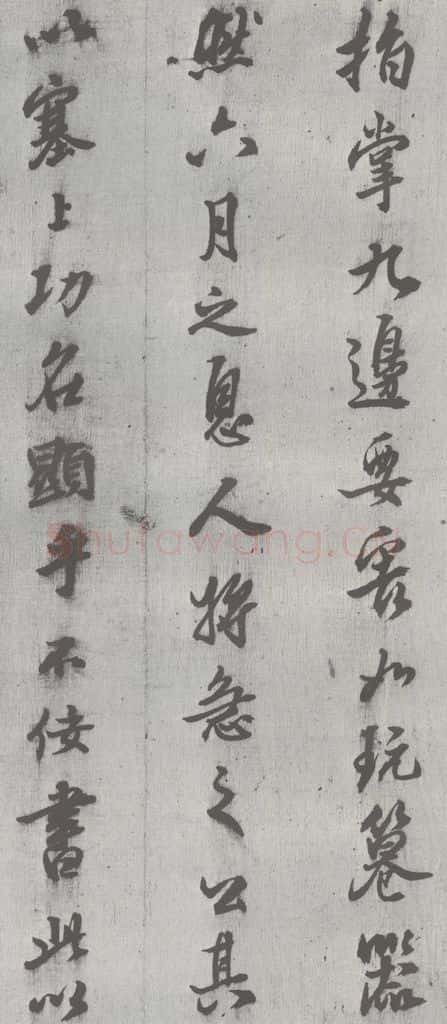 指掌九邊要害如玩篡器
然六月之息人將急之公其
以塞上功名顯乎不佞書此以
shufawang.cn